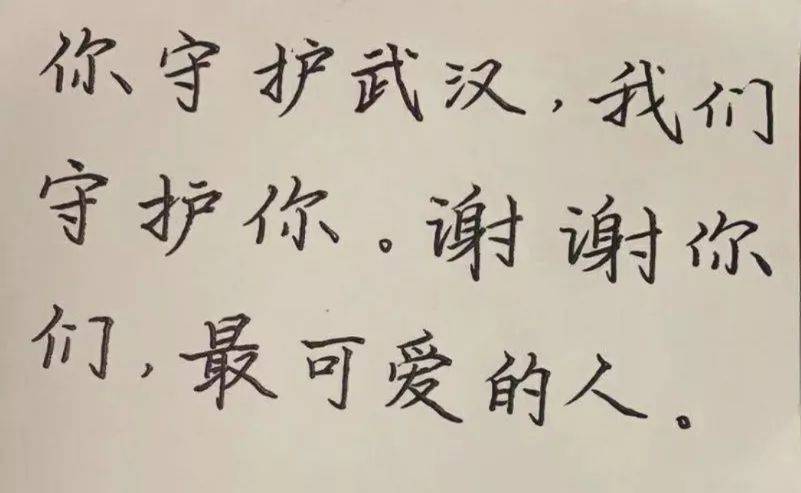 你守护武汉，我们
守护你。谢谢你
们，最可爱的人。